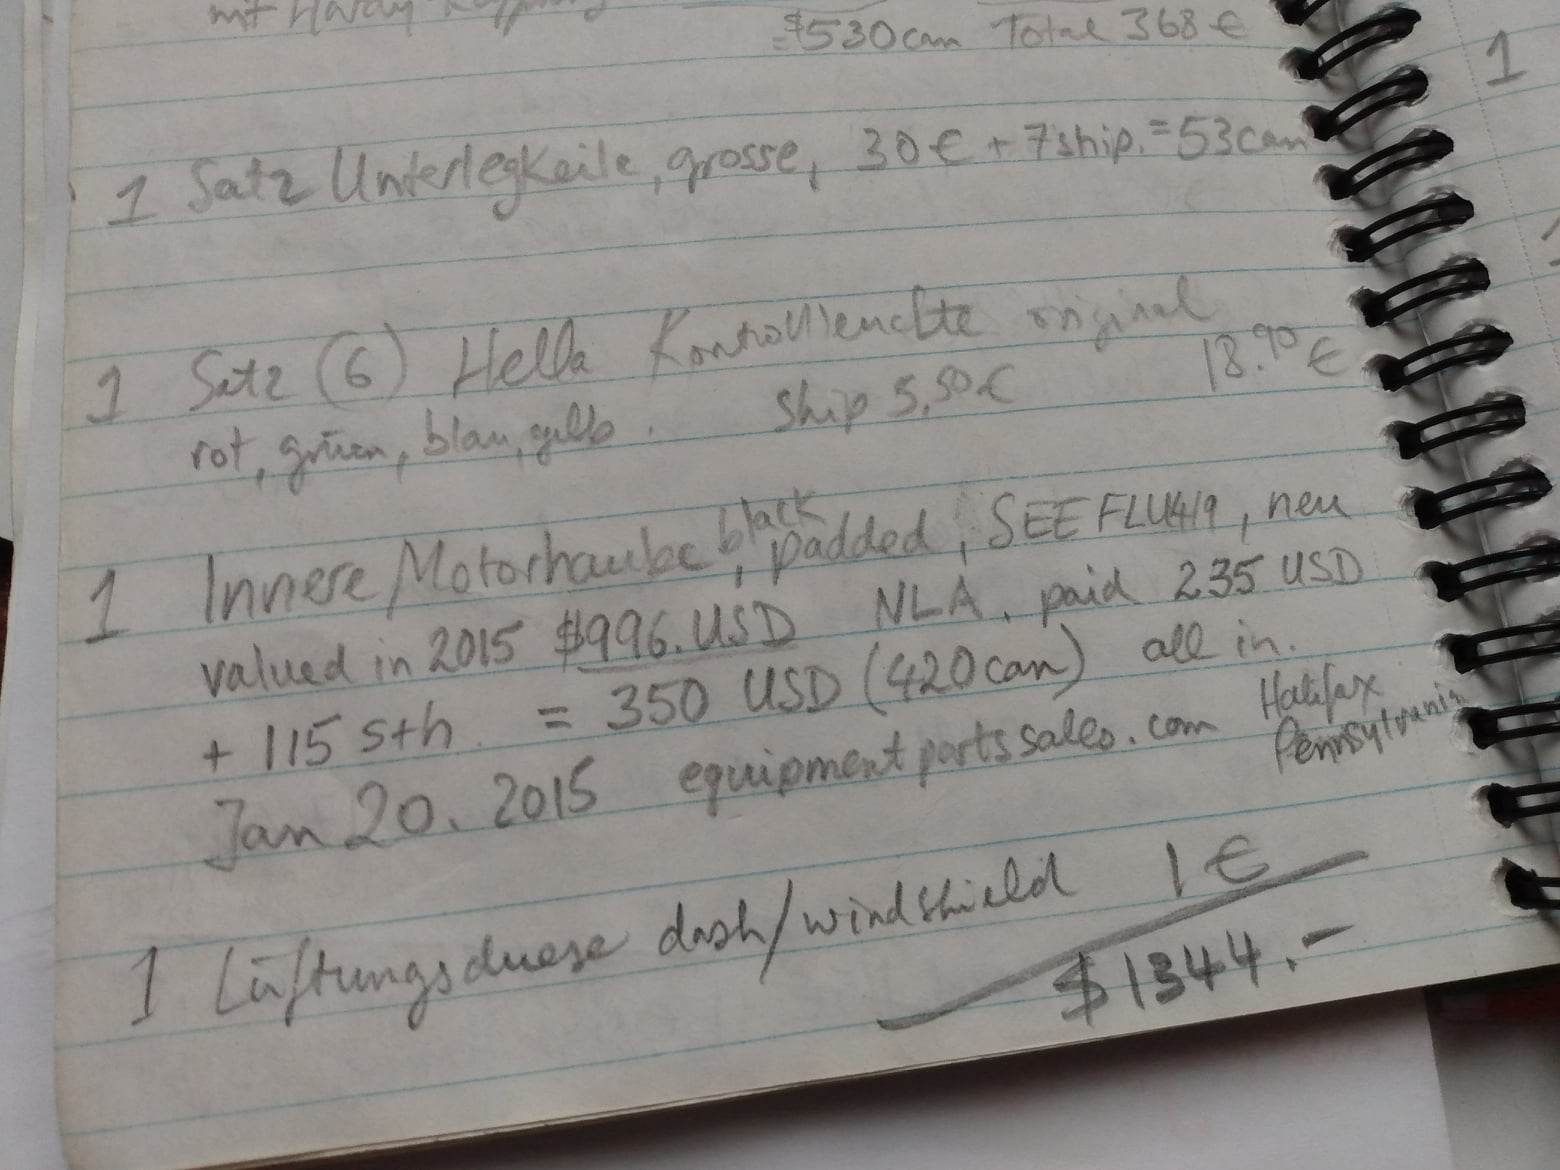 mt Hardy
=$530can Total 368€
1 Satz Unterlegkeile, grosse, 30€ + 7ship. = 53can
1 Satz (6) Hella Kontrollleuchte original
18.90€
rot, grün, blau, gelb. Ship 5,50€
1 Innere Motorhaube, black padded, SEE FLU419, neu
valued in 2015 $996.USD NLA. paid 235 USD
+ 115 s+h. = 350 USD (420can) all in.
Jan 20. 2015 equipmentpartssales.com Halifax
Pennsylvania
1 Lüftungsduese dash/windshield 1€
$1344.-
1